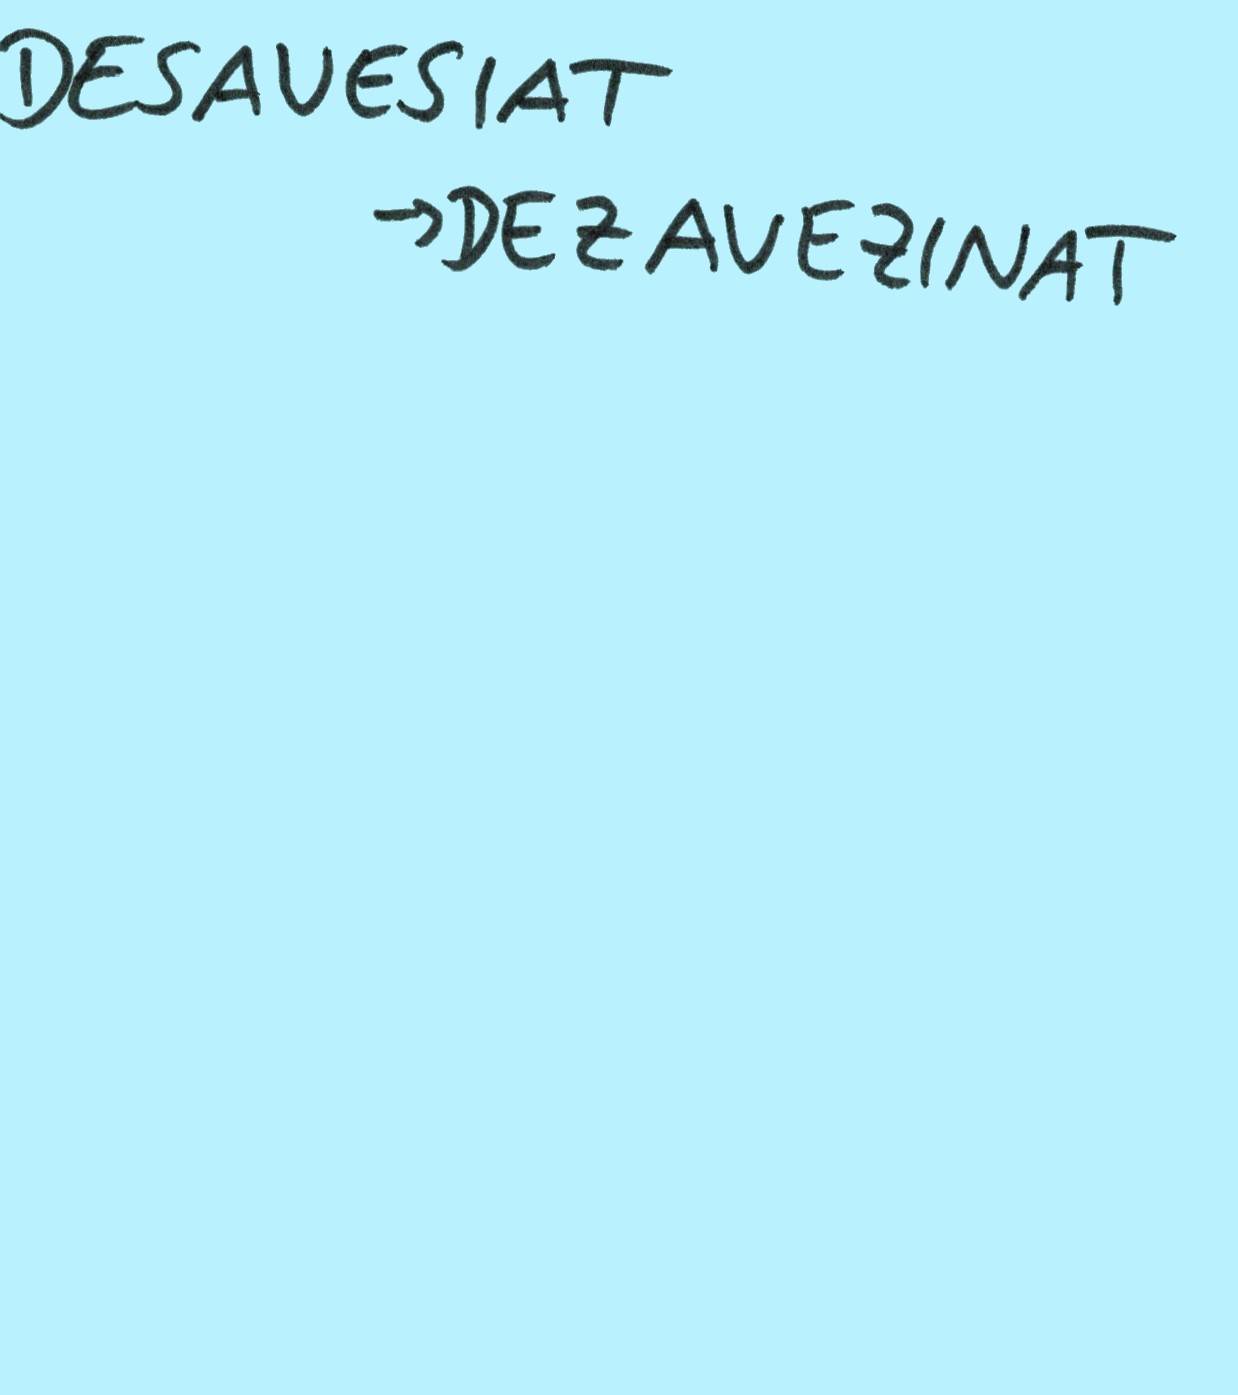 DESAVESIAT
→DEZAVEZINAT